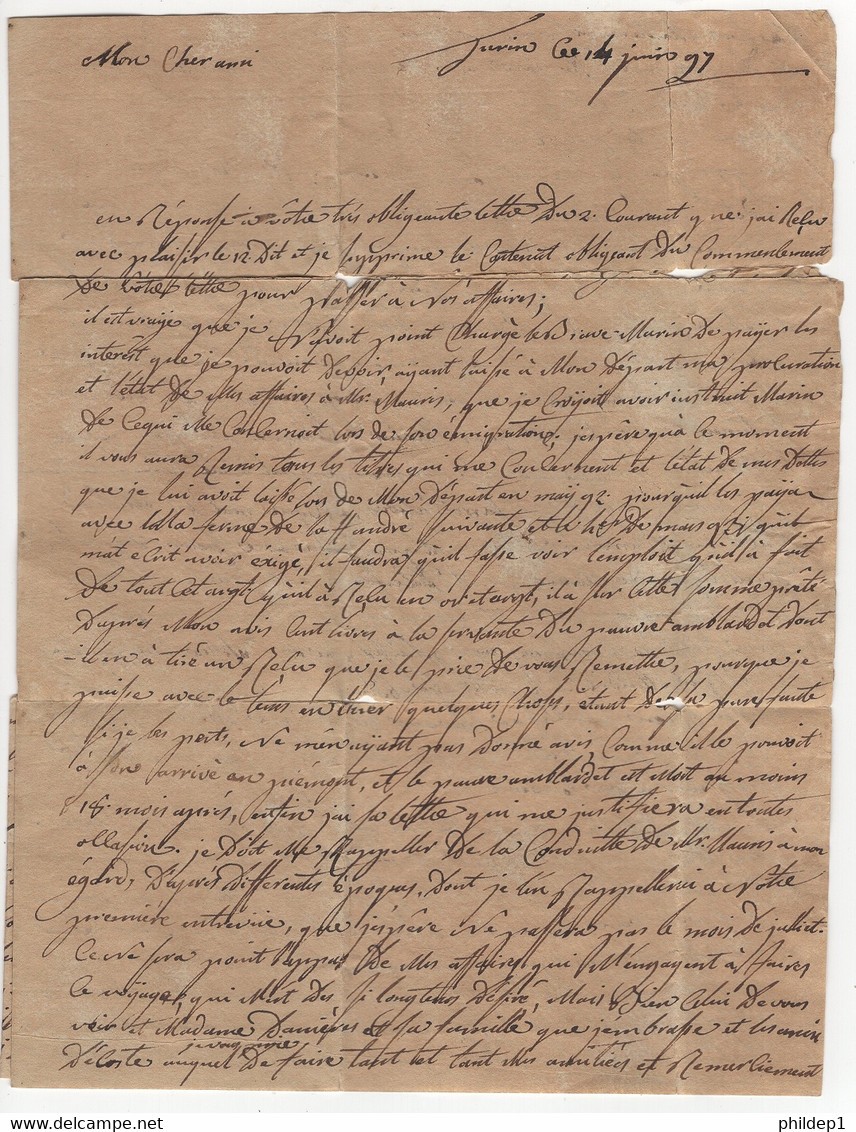 Mon Cher ami
Turin Ce 14 juin 97
en Réponse à vôtre trés obligeante lettre Du 2. Courant que j'ai Reçu
avec plaisir le 12 Dit et je supprime le Contenut obligeant Du Commencement
De vôtre lettre pour passer à Nos affaires;
il est vraye que je N'avoit point Chargé le Brave Marin De payer les
interêt que je pouvoit Devoir, ayant laissé à Mon Départ ma procuration
et l'état De Mes affaires à Mr. Mauris, que je Croyoit avoir instruit Marin
De Cequi Me Concernoit lors de son émigration; j'espère qu'à Ce moment
il vous aura Remis tous les titres qui me Concernent et l'état De mes Dettes
que je lui avoit laissé lors de Mon Départ en may 92. pourqu'il les paya
avec la ferme De la St André suivante et de mars 93 qu'il
m'at écrit avoir éxigé, il faudra qu'il fasse voir l'emploit qu'il à fait
De tout Cet argt qu'il à Reçu en or et argt, il à sur Cette somme prêté
D'aprés Mon avis Cent livres à la servante Du pauvre amblardet Dont
il en à tiré un Reçu que je le prie De vous Remettre, pourque je
puisse avec le tems en tirer quelques Choses, étant De sa pure faute
si je les perts, Ne m'en ayant pas Donné avis, Comme il le pouvoit
à son arrivé en piémont, et le pauvre amblardet est Mort au moins
18. mois aprés, enfin j'ai sa lettre qui me justifiera en toutes
occasion. je Doit Me Rappeller De la Conduitte De Mr. Mauris à mon
égard, D'aprés Differentes époques, Dont je l'en Rappellerai à Nôtre
première entrevüe, que j'espère Ne passera pas le mois De juilliet.
Ce Ne sera point l'appas De Mes affaires qui M'engagent à faires
le voyage, qui M'est Des si longtems Désiré, Mais Bien Celui De vous
voir et Madame Danières et sa famille que j'embrasse et les amis
D'écoste auquel De faire tant et tant Mes amitiés et Remerciement